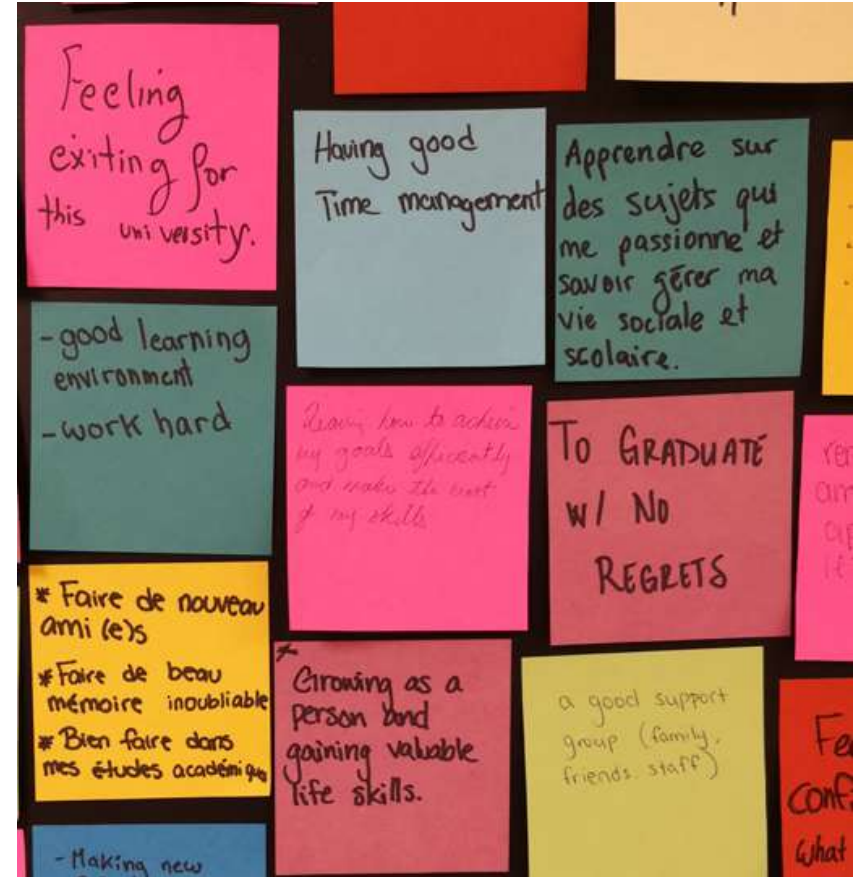 Feeling
exiting for
this university.
Having good
Time management
Apprendre sur
des sujets qui
me passionne et
savoir gérer ma
vie sociale et
scolaire.
- good learning
environment
- work hard
how to achieve
my goals efficiently
and make the most
of my skills
TO GRADUATE
W/ NO
REGRETS
* Faire de nouveau
ami (e)s
* Faire de beau
mémoire inoubliable
* Bien faire dans
mes études académique
* Growing as a
person and
gaining valuable
life skills.
a good support
group (family,
friends. staff)
- Making new
what